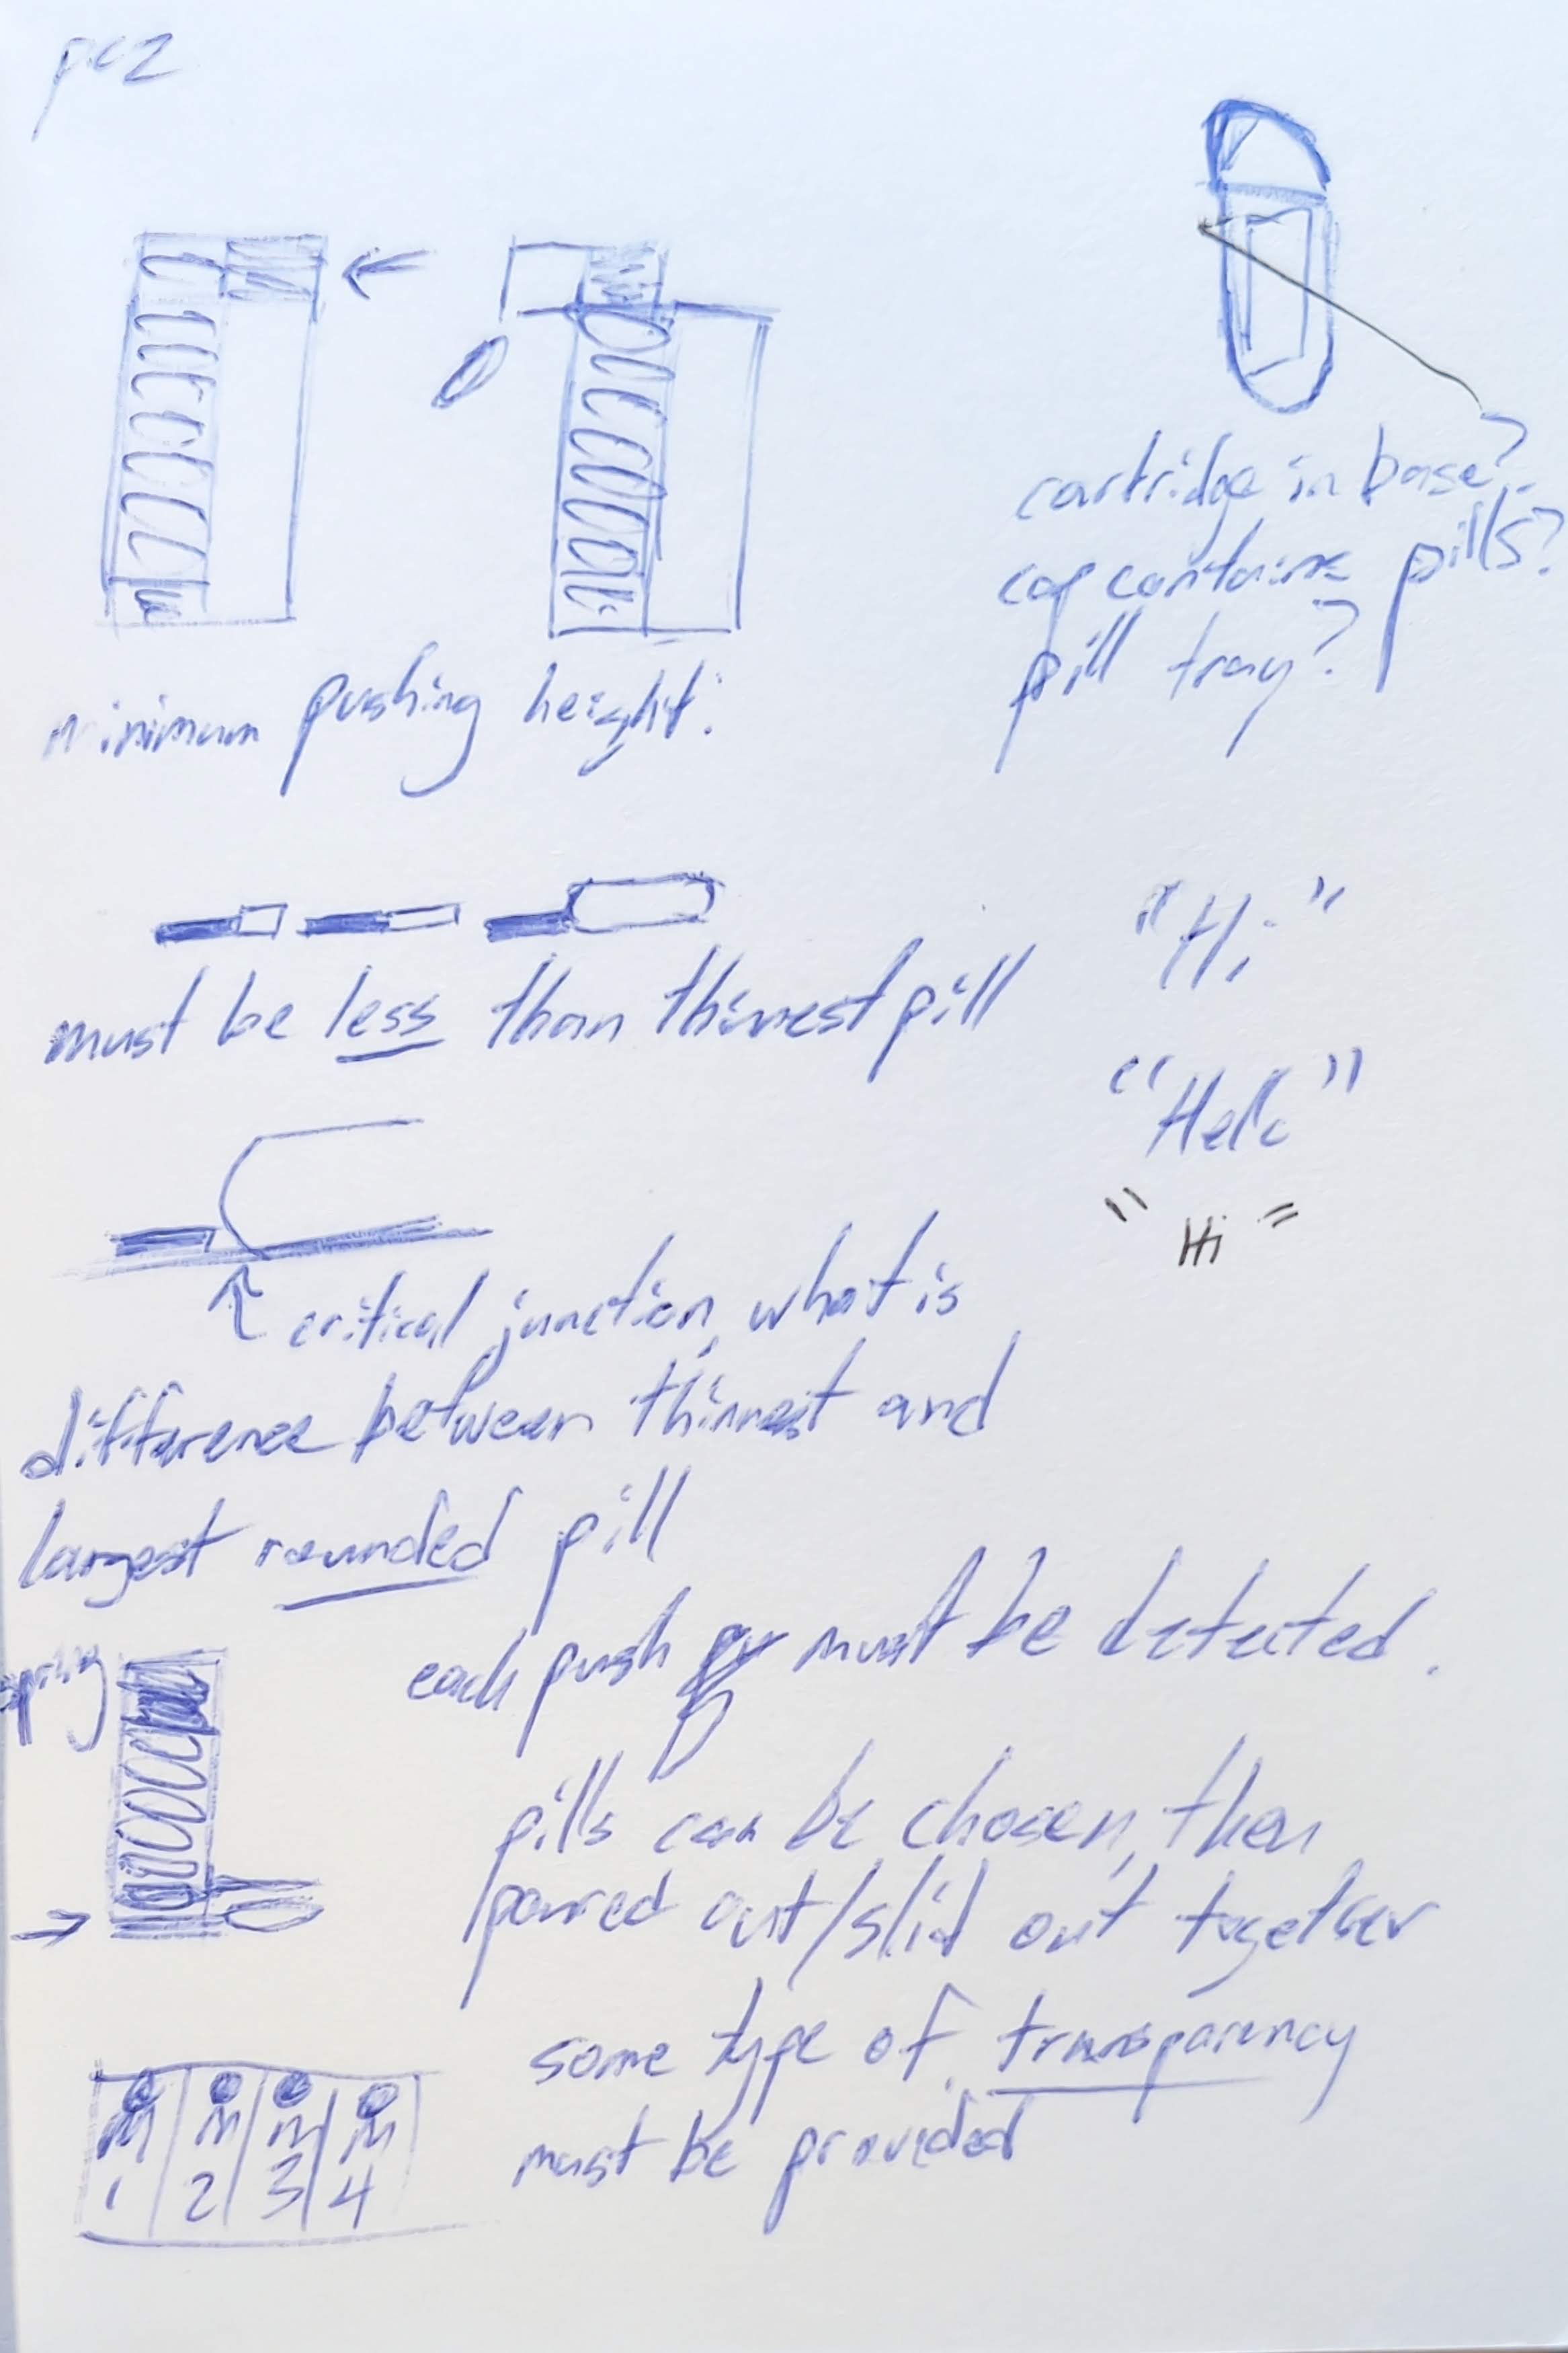 pez
cartridge in base?
cap contains pills?
pill tray?
minimum pushing height:
must be less than thinnest pill
"Hi"
"Hello"
"Hi"
critical junction, what is
difference between thinnest and
largest rounded pill
spring
each push must be detected.
pills can be chosen, then
poured out/slid out together
some type of transparency
must be provided
M M M M
1 2 3 4